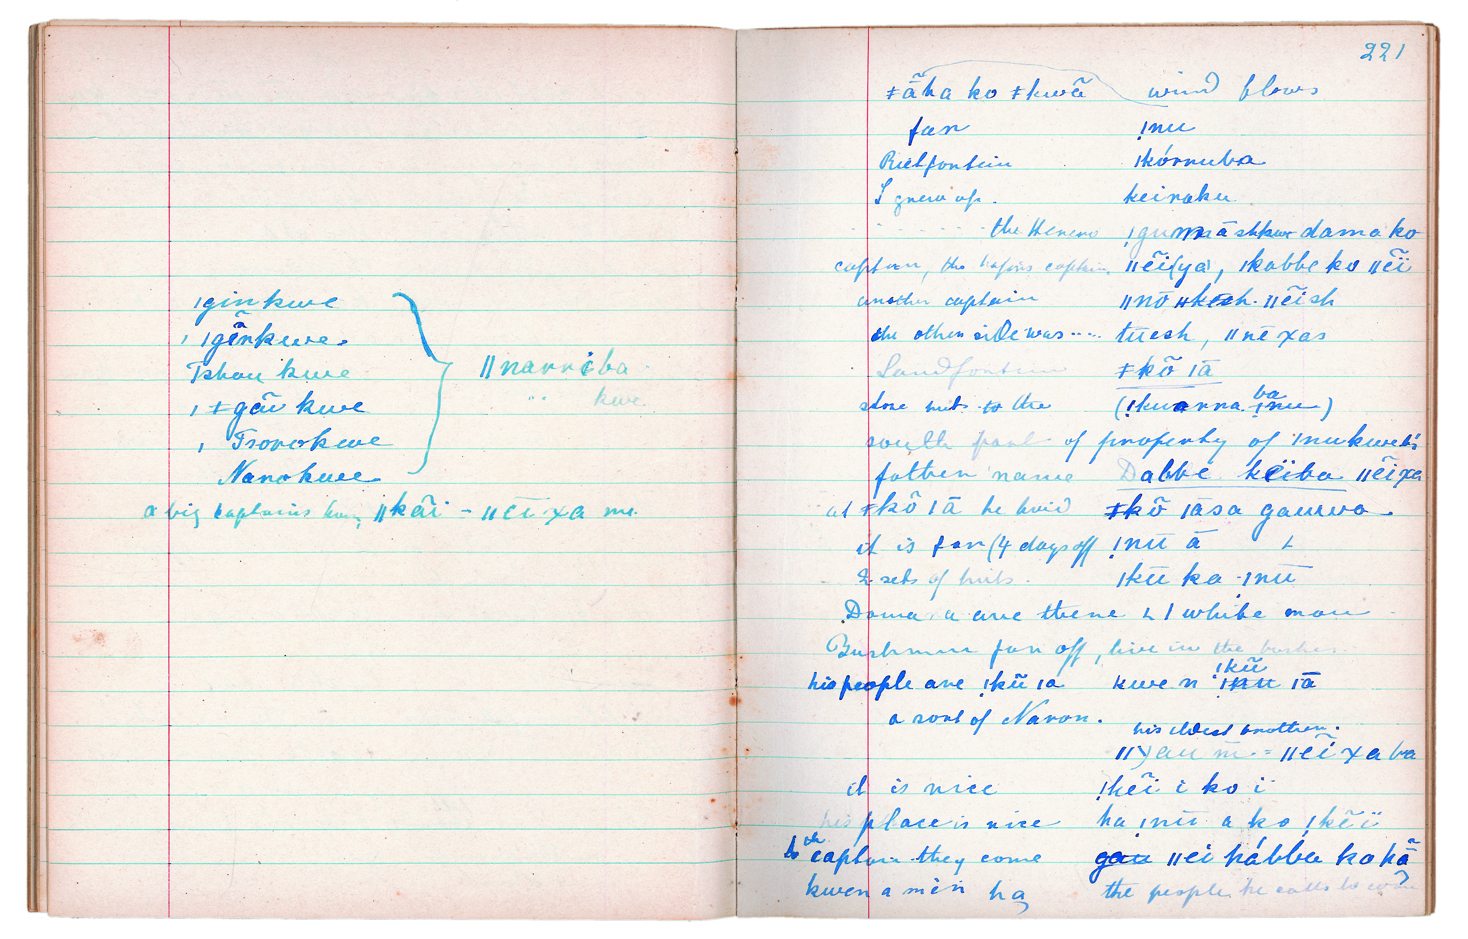 ǀginkwe
ǀ ǀgẽnkwe.
Tshau kwe
ǀ ǂgau kwe
ǀ Tsorokwe
Narokwe
ǁnarriba
" kwe
a big captains ǁkãi - ǁēixa m.
221
ǂãha ko ǂkwã wind blows
far ǃnu
Rietfontein ǀkórnuba
I grew up. keiraku
the Herero dama ko
captain, the captain ǁẽi(ya), ǀkabbe ko ǁẽï
another captain ǁnō ǁēish
the other side was .... tüesh, ǁnēxas
Sandfontein ǂkõ ǀā
stone huts to the (ǃkuarra ba ǃnu)
south part of property of ǀnukweb's
father name Dabbe këiba ǁẽixa
at ǂkõ ǀā he lived ǂkõ ǀāsa gauwa.
it is far (4 days off ǃnū ā
2 sets of huts. ǀkū ka ǀnū
Dama a are there & 1 white man
Bushman far off, live in the bushes
his people are ǃkũ ǀa kwe n ǀkũ ǃnu ǀā
a sort of Naron.
his eldest brother.
ǁgau m = ǁẽixaba
it is nice ǃkẽi i ko i
his place is nice ha ǃnū a ko ǃkẽiï
to the captain they come gau ǁei hábba ko hã
kwen a mēn ha the people he calls to come